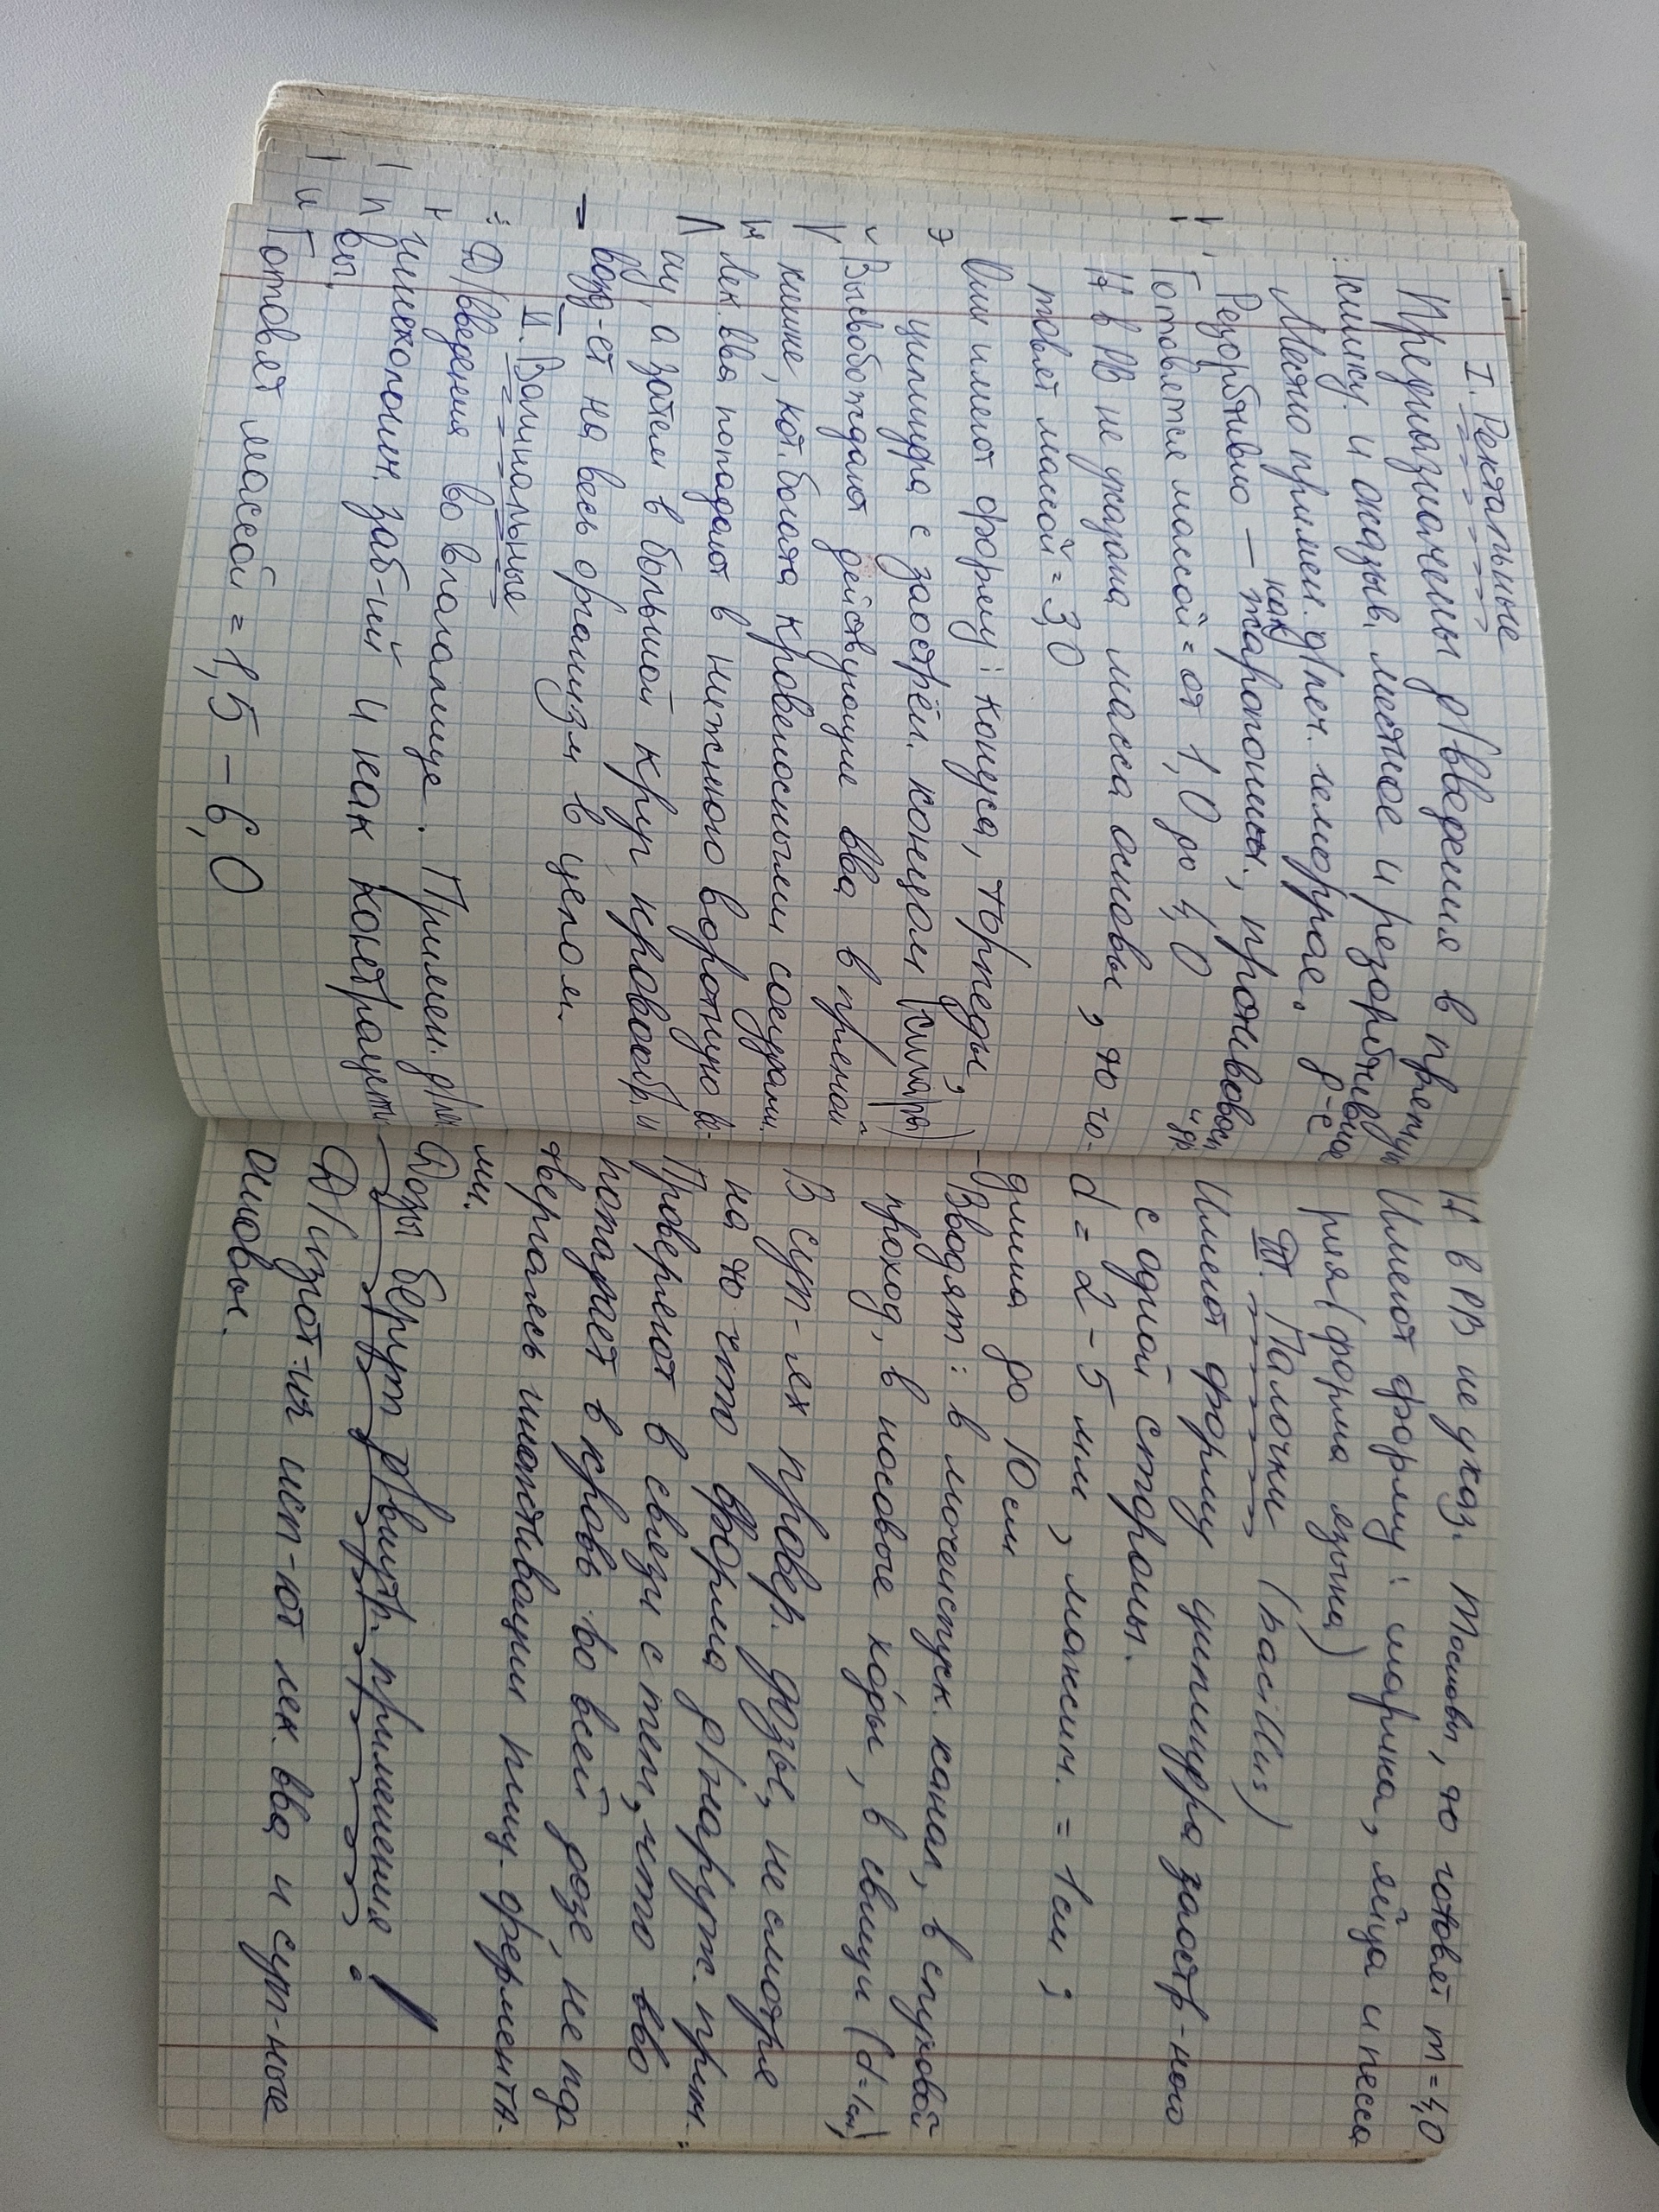 I. Ректальные
Предназначены д/введения в прямую
кишку и оказыв. местное и резорбтивное
Местно примен. д/леч. геморроя. д-е
Резорбтивно — как жаропониж., противовосп.
Готовятся массой = от 1,0 до 4,0 и др.
Если в РВ не указана масса основы, то го-
товят массой = 3,0
Они имеют форму: конуса, торпеды,
цилиндра с заострён. концом (сигары)
Высвобождают действующие вва в прямой
кишке, кот. богата кровеносными сосудами.
Лек. вва попадают в нижнюю воротную ве-
ну, а затем в большой круг кровообр. и
возд-ет на весь организм в целом.
II. Вагинальные
Д/введения во влагалище. Примен. д/леч.
гинекологич. заб-ний и как контрацепти-
вы.
Готовят массой = 1,5 – 6,0
в РВ не указ. mосновы, то готовят m=4,0
Имеют форму: шарика, яйца и песса
рия (форма язычка)
III. Палочки (bacillus)
Имеют форму цилиндра заостр-ного
с одной стороны.
d = 2 – 5 мм, максим. = 1см;
длина до 10 см
Вводят: в мочеиспуск. канал, в слуховой
проход, в носовые ходы, в свищи (d=1см)
В суп-ях провер. дозы, не смотря
на то что форма д/наруж. прим.
Проверяют в связи с тем, что вво
попадает в кровь во всей дозе, не под
вергаясь инактивации пищ. фермента-
ми.
Дозы берут д/внутр. применения!
Д/изгот-ия исп-ют лек. вва и суп-ные
основы.